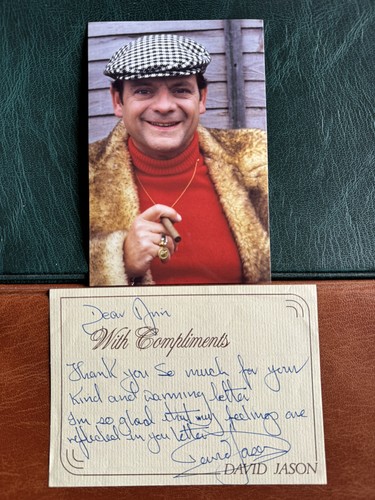 Dear Ann
With Compliments
Thank you so much for your
kind and warming letter
I'm so glad that my feelings are
reflected in you letter
David Jason
DAVID JASON